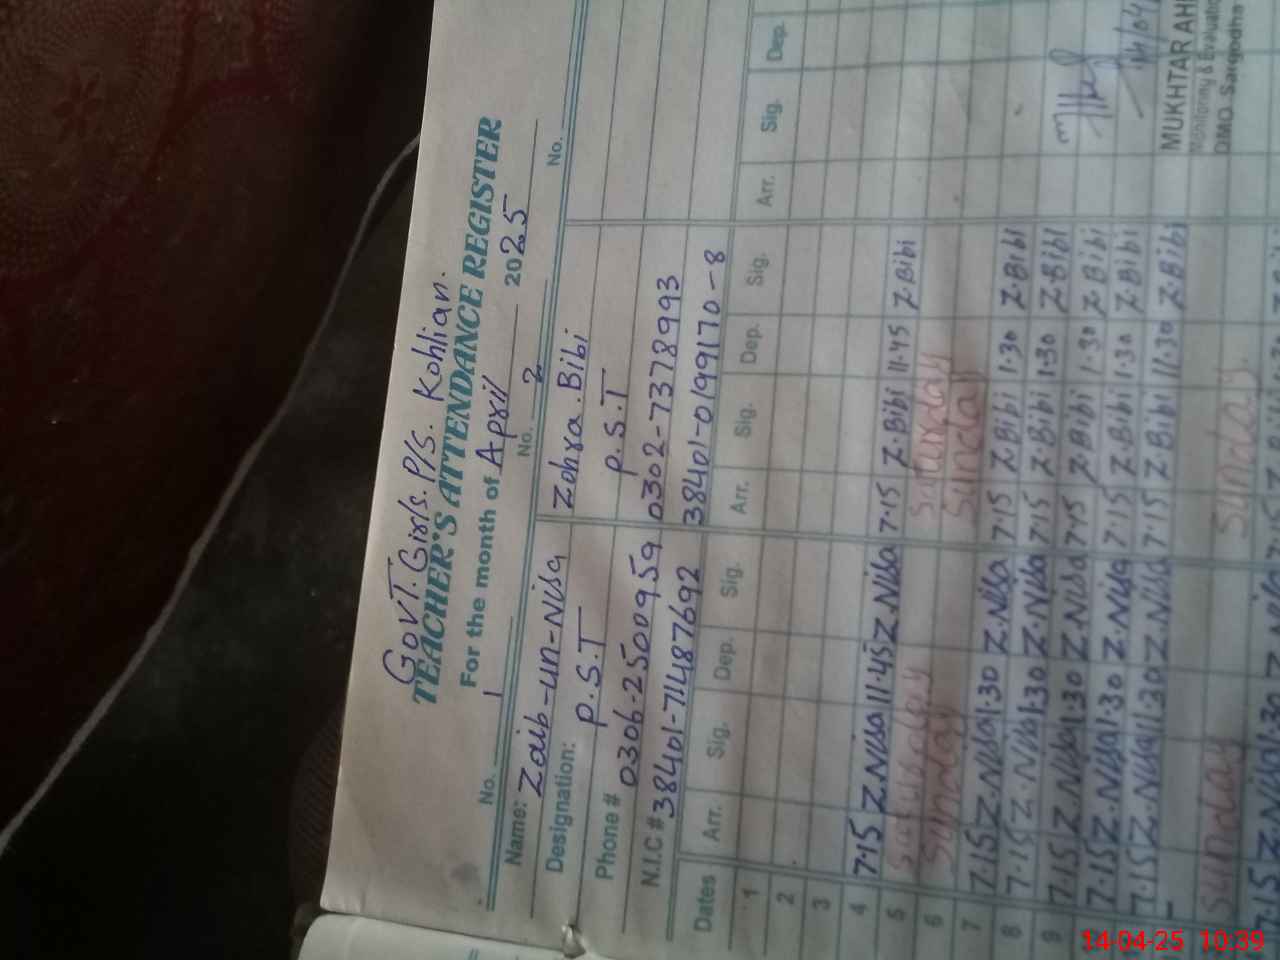 GOVT. Girls. P/S. Kohlian.
TEACHER'S ATTENDANCE REGISTER
For the month of April 2025
No. 1 No. 2 No.
Name: Zaib-un-Nisa Zohra.Bibi
Designation: P.S.T P.S.T
Phone # 0306-2500959 0302-7378993
N.I.C # 38401-71487692 38401-0199170-8
Dates Arr. Sig. Dep. Sig. Arr. Sig. Dep. Sig. Arr. Sig. Dep.
1
2
3
4 7.15 Z.Nisa 11.45 Z.Nisa 7.15 Z.Bibi 11.45 Z.Bibi
5 Saturday Saturday
6 Sunday Sunday
7 7.15 Z.Nisa 1.30 Z.Nisa 7.15 Z.Bibi 1.30 Z.Bibi
8 7.15 Z.Nisa 1.30 Z.Nisa 7.15 Z.Bibi 1.30 Z.Bibi
9 7.15 Z.Nisa 1.30 Z.Nisa 7.15 Z.Bibi 1.30 Z.Bibi
7.15 Z.Nisa 1.30 Z.Nisa 7.15 Z.Bibi 1.30 Z.Bibi
7.15 Z.Nisa 11.30 Z.Nisa 7.15 Z.Bibi 11.30 Z.Bibi
MUKHTAR
Monitoring & Evaluation
DMO Sargodha
Sunday Sunday
7.15 Z.Nisa 1.30
14-04-25 10:39